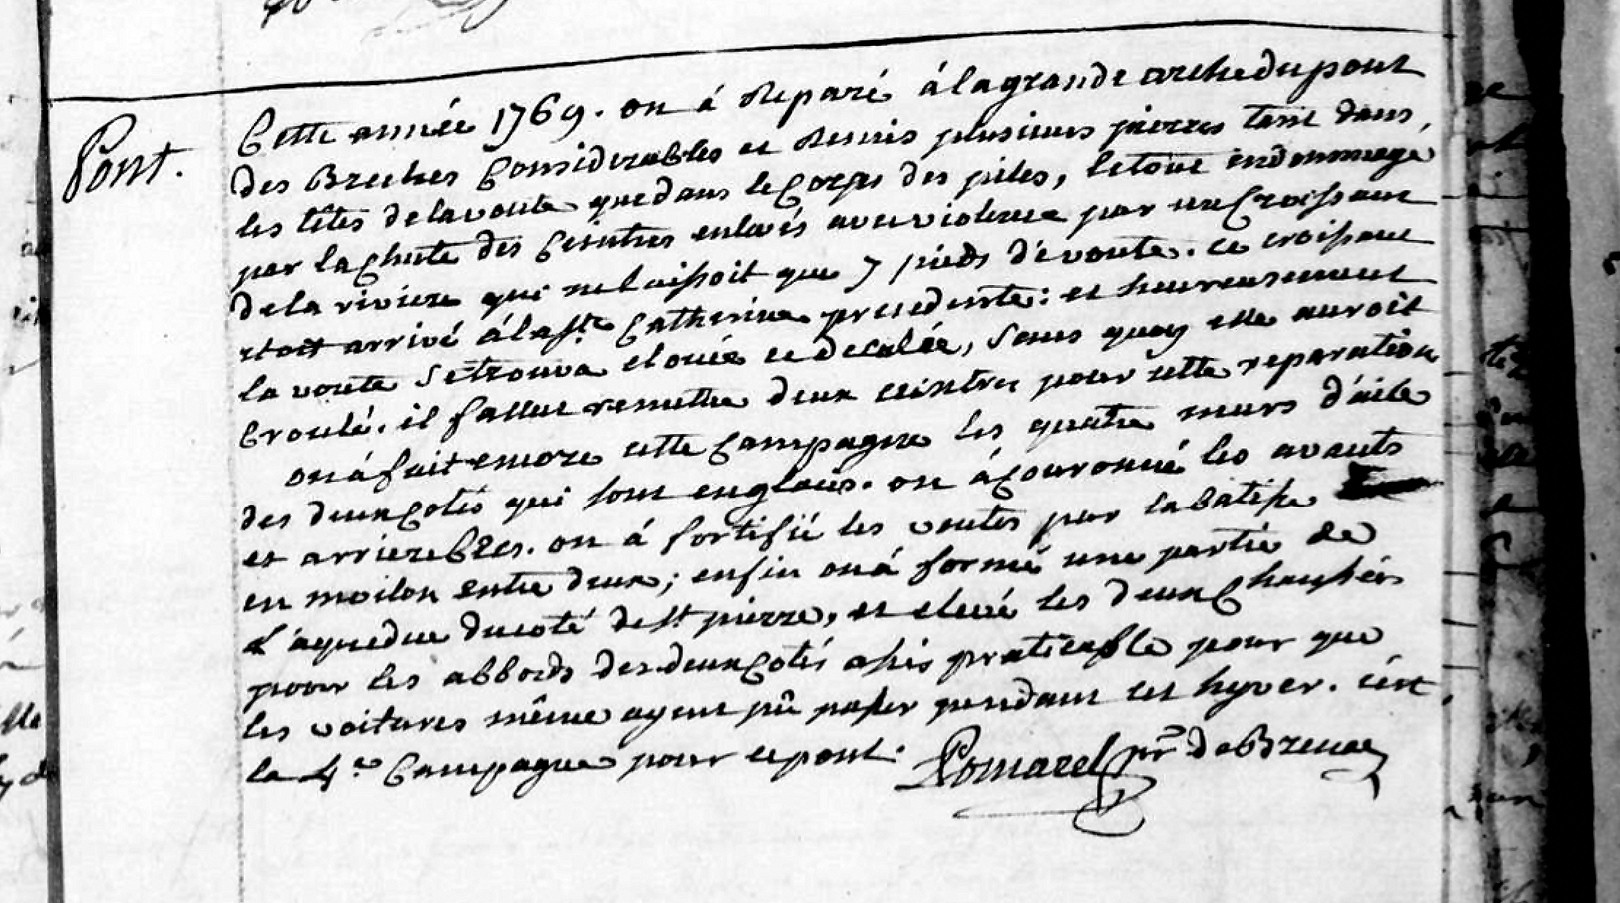 Pont.
Cette année 1769. on á Reparé á la grande arche du pont
des Breches Considerables et Remis plusieurs pierres tant dans
les têtes de la voute que dans le Corps des piles, le tout endommagé
par la Chute des Ceintres enlevés avec violence par un Croissant
de la riviere qui ne laissoit que 7 pieds de voute. ce croissant
etoit arrivé á la Ste Catherine precedente: et heureusement
la voute se trouva clouée et decalée, sans quoy elle auroit
Croulé. il fallut remettre deux ceintres pour cette reparation
on á fait encore cette Campagne les quatre murs d'aile
des deux Cotés qui sont en glacis. on á Couronné les avants
et arriere becs. on á fortifié les voutes par la batisse
en moilon entre deux; enfin on á formé une partie de
L'aqueduc du coté de St pierre, et elevé les deux Chaussées
pour les abbords des deux Cotés assés praticable pour que
les voitures même ayent pû passer pendant cet hyver. c'est
la 4e. Campagne pour ce pont. Pomarel pr. de Brenac